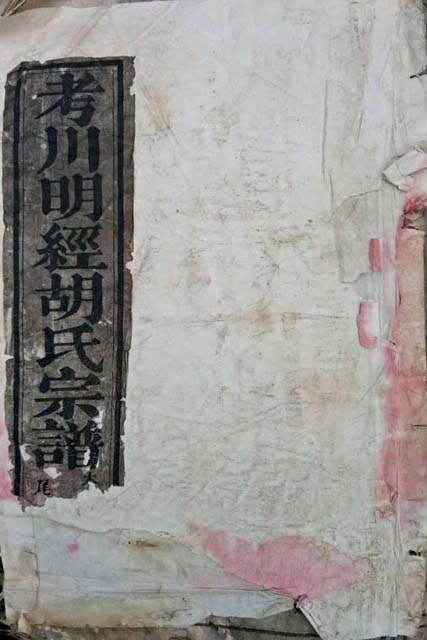 考川明經胡氏宗譜
尾